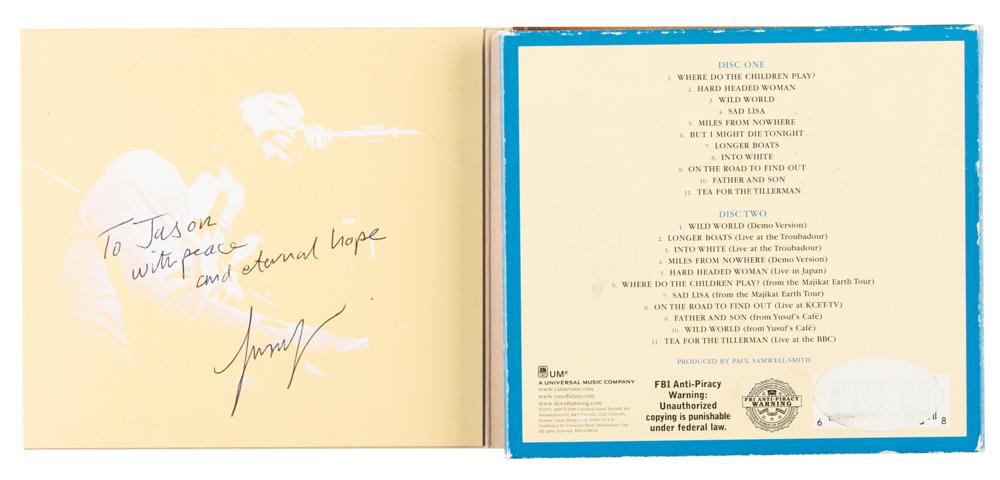 To Jason
with peace
and eternal hope
Yusuf
DISC ONE
1. WHERE DO THE CHILDREN PLAY?
2. HARD HEADED WOMAN
3. WILD WORLD
4. SAD LISA
5. MILES FROM NOWHERE
6. BUT I MIGHT DIE TONIGHT
7. LONGER BOATS
8. INTO WHITE
9. ON THE ROAD TO FIND OUT
10. FATHER AND SON
11. TEA FOR THE TILLERMAN
DISC TWO
1. WILD WORLD (Demo Version)
2. LONGER BOATS (Live at the Troubadour)
3. INTO WHITE (Live at the Troubadour)
4. MILES FROM NOWHERE (Demo Version)
5. HARD HEADED WOMAN (Live in Japan)
6. WHERE DO THE CHILDREN PLAY? (from the Majikat Earth Tour)
7. SAD LISA (from the Majikat Earth Tour)
8. ON THE ROAD TO FIND OUT (Live at KCET-TV)
9. FATHER AND SON (from Yusuf's Café)
10. WILD WORLD (from Yusuf's Café)
11. TEA FOR THE TILLERMAN (Live at the BBC)
PRODUCED BY PAUL SAMWELL-SMITH
A&M UMe
A UNIVERSAL MUSIC COMPANY
www.catstevens.com
www.yusufislam.com
FBI Anti-Piracy
Warning:
Unauthorized
copying is punishable
under federal law.
FBI ANTI-PIRACY
WARNING
6 8